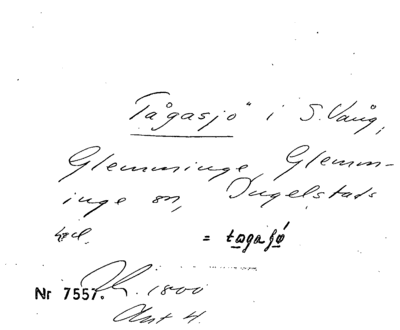 Tågasjö" i S. Vång,
Glemminge Glemm-
inge sn, Ingelstads
hd. = tagasjö
Nr 7557. 1800
Ant 4.